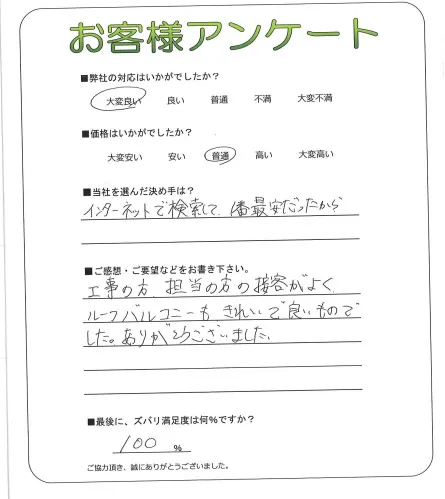 お客様アンケート
■弊社の対応はいかがでしたか?
大変良い 良い 普通 不満 大変不満
■価格はいかがでしたか?
大変安い 安い 普通 高い 大変高い
■当社を選んだ決め手は?
インターネットで検索して、1番最安だったから
■ご感想・ご要望などをお書き下さい。
工事の方、担当の方の接客がよく
ルーフバルコニーも、きれいで良いもので
した。ありがとうございました。
■最後に、ズバリ満足度は何%ですか?
100 %
ご協力頂き、誠にありがとうございました。